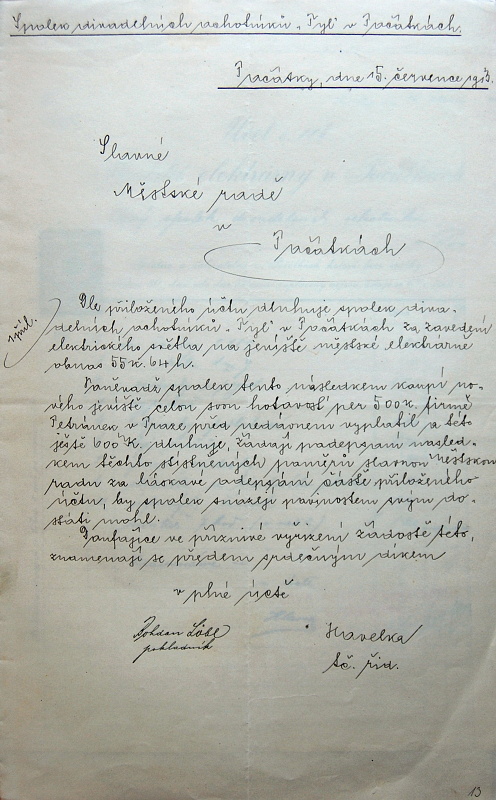 Spolek divadelních ochotníků „Tyl" v Počátkách.
Počátky, dne 15. července 1913.
Slavné
Městské radě
v
Počátkách
1 příl.
Dle přiloženého účtu dluhuje spolek diva-
delních ochotníků „Tyl" v Počátkách za zavedení
elektrického světla na jeviště městské elektrárně
obnos 55 K. 64 h.
Poněvadž spolek tento následkem koupi no-
vého jeviště celou svou hotovost per 500 K. firmě
Petránek v Praze před nedavnem vyplatil a této
ještě 600 K dluhuje, žádají podepsaní násled-
kem těchto stísněných poměrů slavnou Městskou
radu za laskavé odepsání části přiloženého
účtu, by spolek snázeji povinostem svým do-
státi mohl.
Doufajíce ve příznivé vyřízení žádosti této,
znamenají se předem srdečným díkem
v plné úctě
Bohdan Löbl
pokladník
Havelka
tč. řid.
13